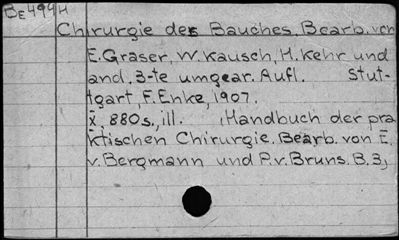 BE499H
Chirurgie des Bauches. Bearb. von
E. Graser, W. Kausch, H. Kehr und
and. 3-te umgear. Aufl. Stut-
tgart, F. Enke, 1907.
X, 880s., ill. (Handbuch der pra
ktischen Chirurgie. Bearb. von E.
v. Bergmann und P. v. Bruns. B. 3)